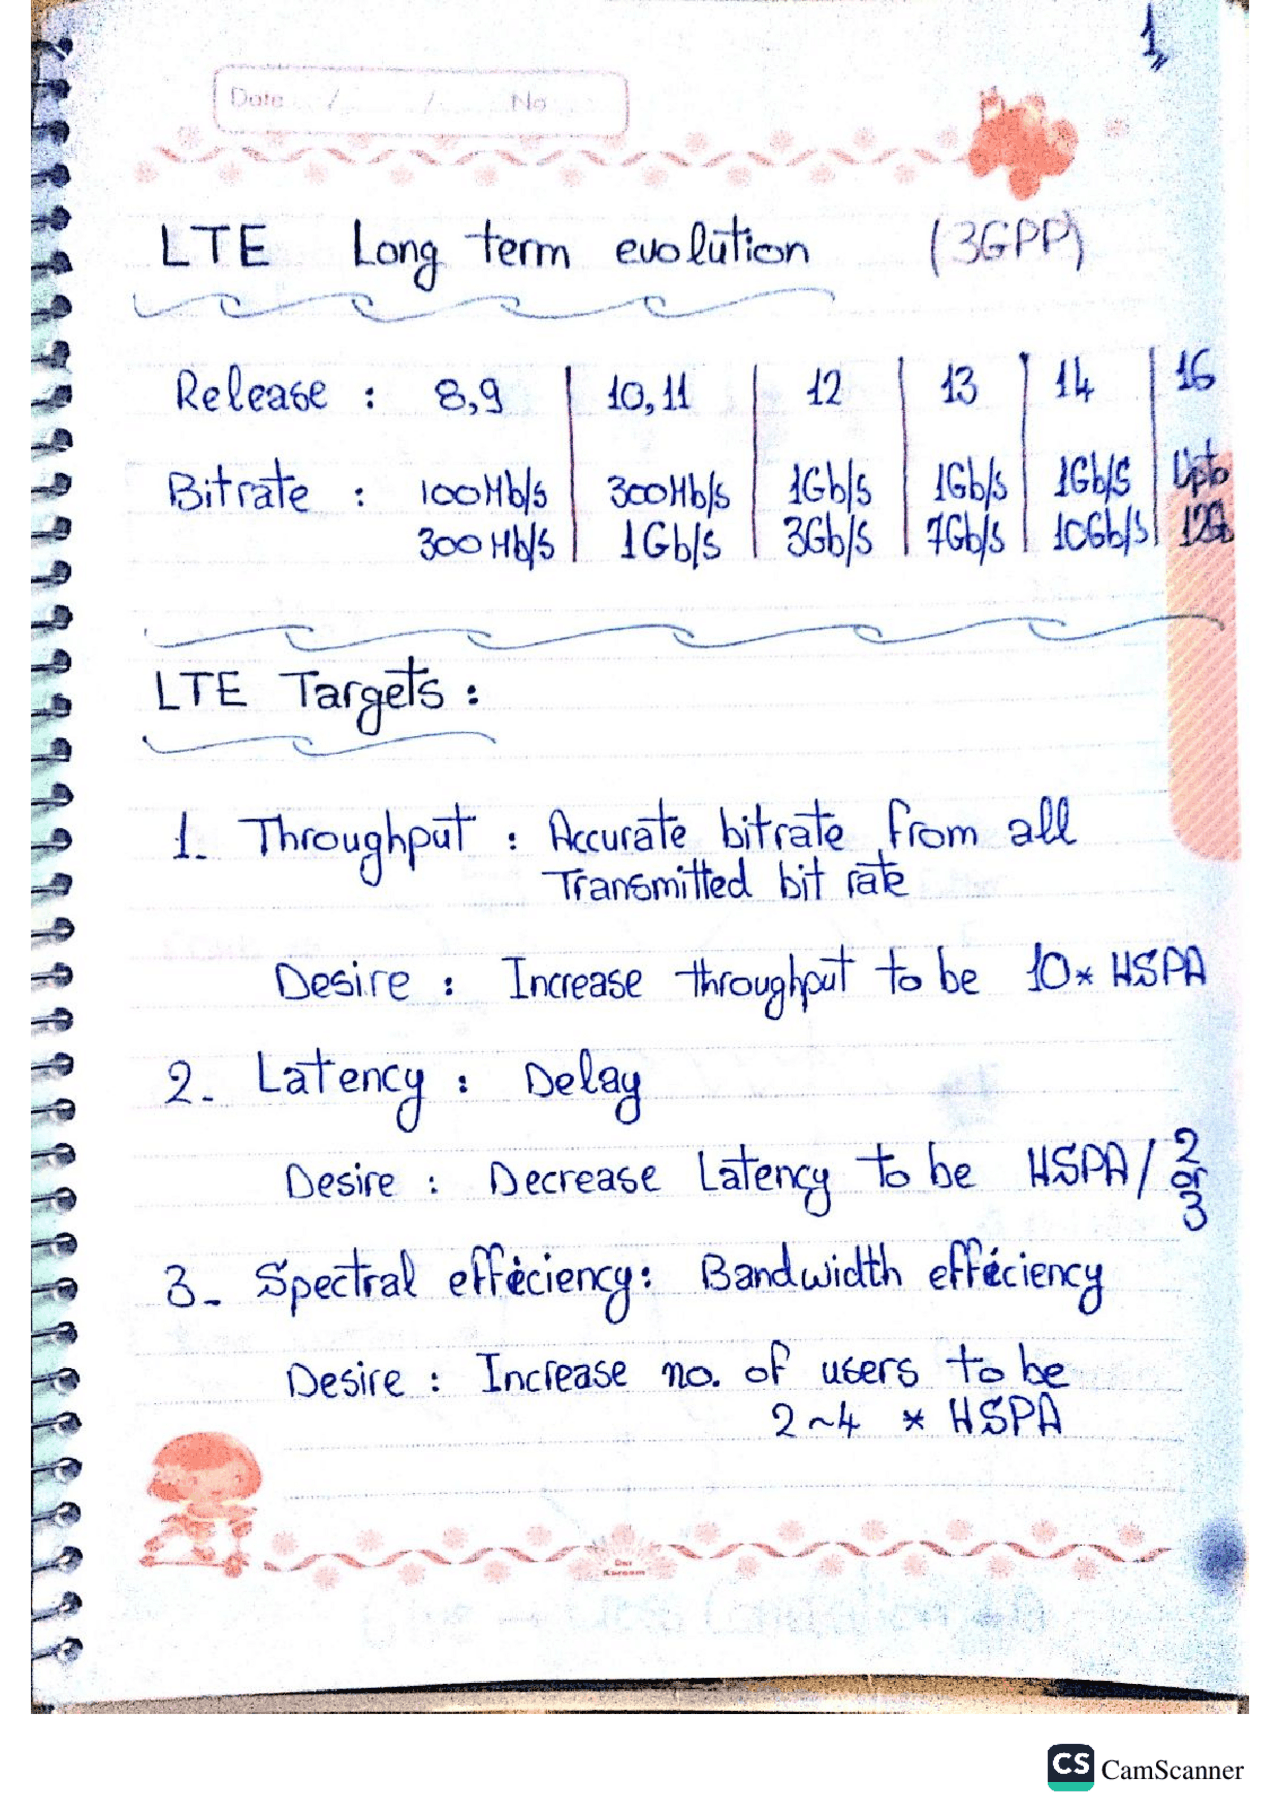 1,,
Date / / No
LTE Long term evolution (3GPP)
Release : 8,9 10,11 12 13 14 16
Bitrate : 100Mb/s 300Mb/s 1Gb/s 1Gb/s 1Gb/s Upto
300Mb/s 1Gb/s 3Gb/s 7Gb/s 10Gb/s 12Gb
LTE Targets :
1. Throughput : Accurate bitrate from all
Transmitted bit rate
Desire : Increase throughput to be 10* HSPA
2. Latency : Delay
Desire : Decrease Latency to be HSPA / 2
or
3
3. Spectral efficiency : Bandwidth efficiency
Desire : Increase no. of users to be
2~4 * HSPA
CS CamScanner